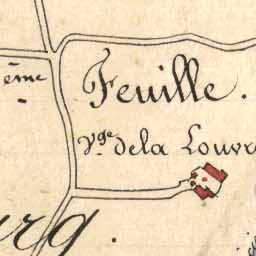 ème
Feuille.
Vge de la Louvr
urg.